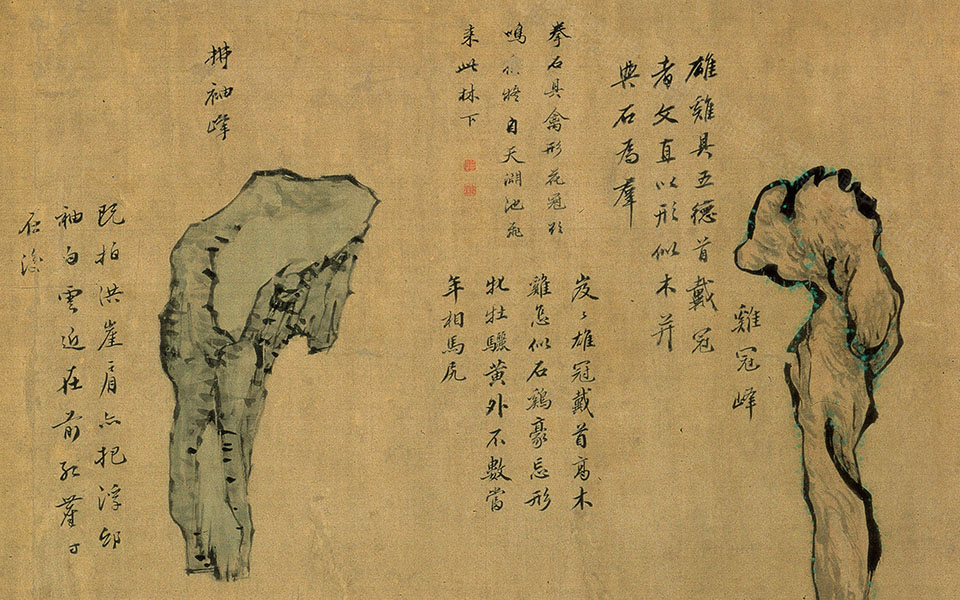 雞冠峰
雄雞具五德首戴冠
者文直以形似木并
與石為羣
拳石具禽形花冠影
鳴 自天淵池飛
来此林下
岌〻雄冠戴首高木
雞怎似石鷄豪忘形
牝牡驪黄外不數當
年相馬尻
拂袖峰
既拍洪崖肩亦把浮邱
袖白雲近在前 
石淙